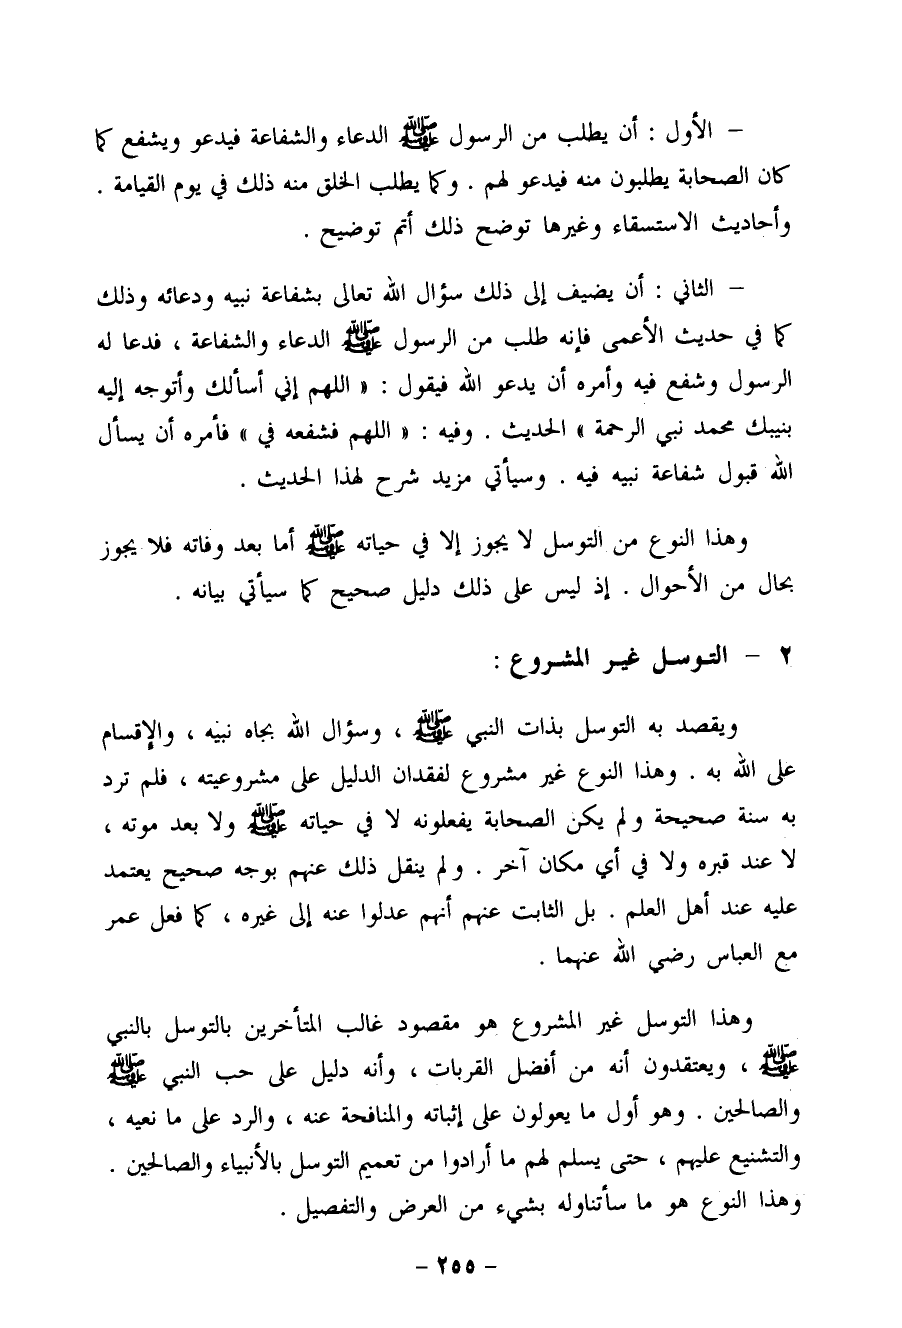 – الأول : أن يطلب من الرسول ﷺ الدعاء والشفاعة فيدعو ويشفع كما
كان الصحابة يطلبون منه فيدعو لهم . وكما يطلب الخلق منه ذلك في يوم القيامة .
وأحاديث الاستسقاء وغيرها توضح ذلك أتم توضيح .
– الثاني : أن يضيف إلى ذلك سؤال الله تعالى بشفاعة نبيه ودعائه وذلك
كما في حديث الأعمى فإنه طلب من الرسول ﷺ الدعاء والشفاعة ، فدعا له
الرسول وشفع فيه وأمره أن يدعو الله فيقول : « اللهم إني أسألك وأتوجه إليه
بنيبك محمد نبي الرحمة » الحديث . وفيه : « اللهم فشفعه في » فأمره أن يسأل
الله قبول شفاعة نبيه فيه . وسيأتي مزيد شرح لهذا الحديث .
وهذا النوع من التوسل لا يجوز إلا في حياته ﷺ أما بعد وفاته فلا يجوز
بحال من الأحوال . إذ ليس على ذلك دليل صحيح كما سيأتي بيانه .
٢ – التوسل غير المشروع :
ويقصد به التوسل بذات النبي ﷺ ، وسؤال الله بجاه نبيه ، والإقسام
على الله به . وهذا النوع غير مشروع لفقدان الدليل على مشروعيته ، فلم ترد
به سنة صحيحة ولم يكن الصحابة يفعلونه لا في حياته ﷺ ولا بعد موته ،
لا عند قبره ولا في أي مكان آخر . ولم ينقل ذلك عنهم بوجه صحيح يعتمد
عليه عند أهل العلم . بل الثابت عنهم أنهم عدلوا عنه إلى غيره ، كما فعل عمر
مع العباس رضي الله عنهما .
وهذا التوسل غير المشروع هو مقصود غالب المتأخرين بالتوسل بالنبي
ﷺ ، ويعتقدون أنه من أفضل القربات ، وأنه دليل على حب النبي ﷺ
والصالحين . وهو أول ما يعولون على إثباته والمنافحة عنه ، والرد على ما نعيه ،
والتشنيع عليهم ، حتى يسلم لهم ما أرادوا من تعميم التوسل بالأنبياء والصالحين .
وهذا النوع هو ما سأتناوله بشيء من العرض والتفصيل .
– ٢٥٥ –